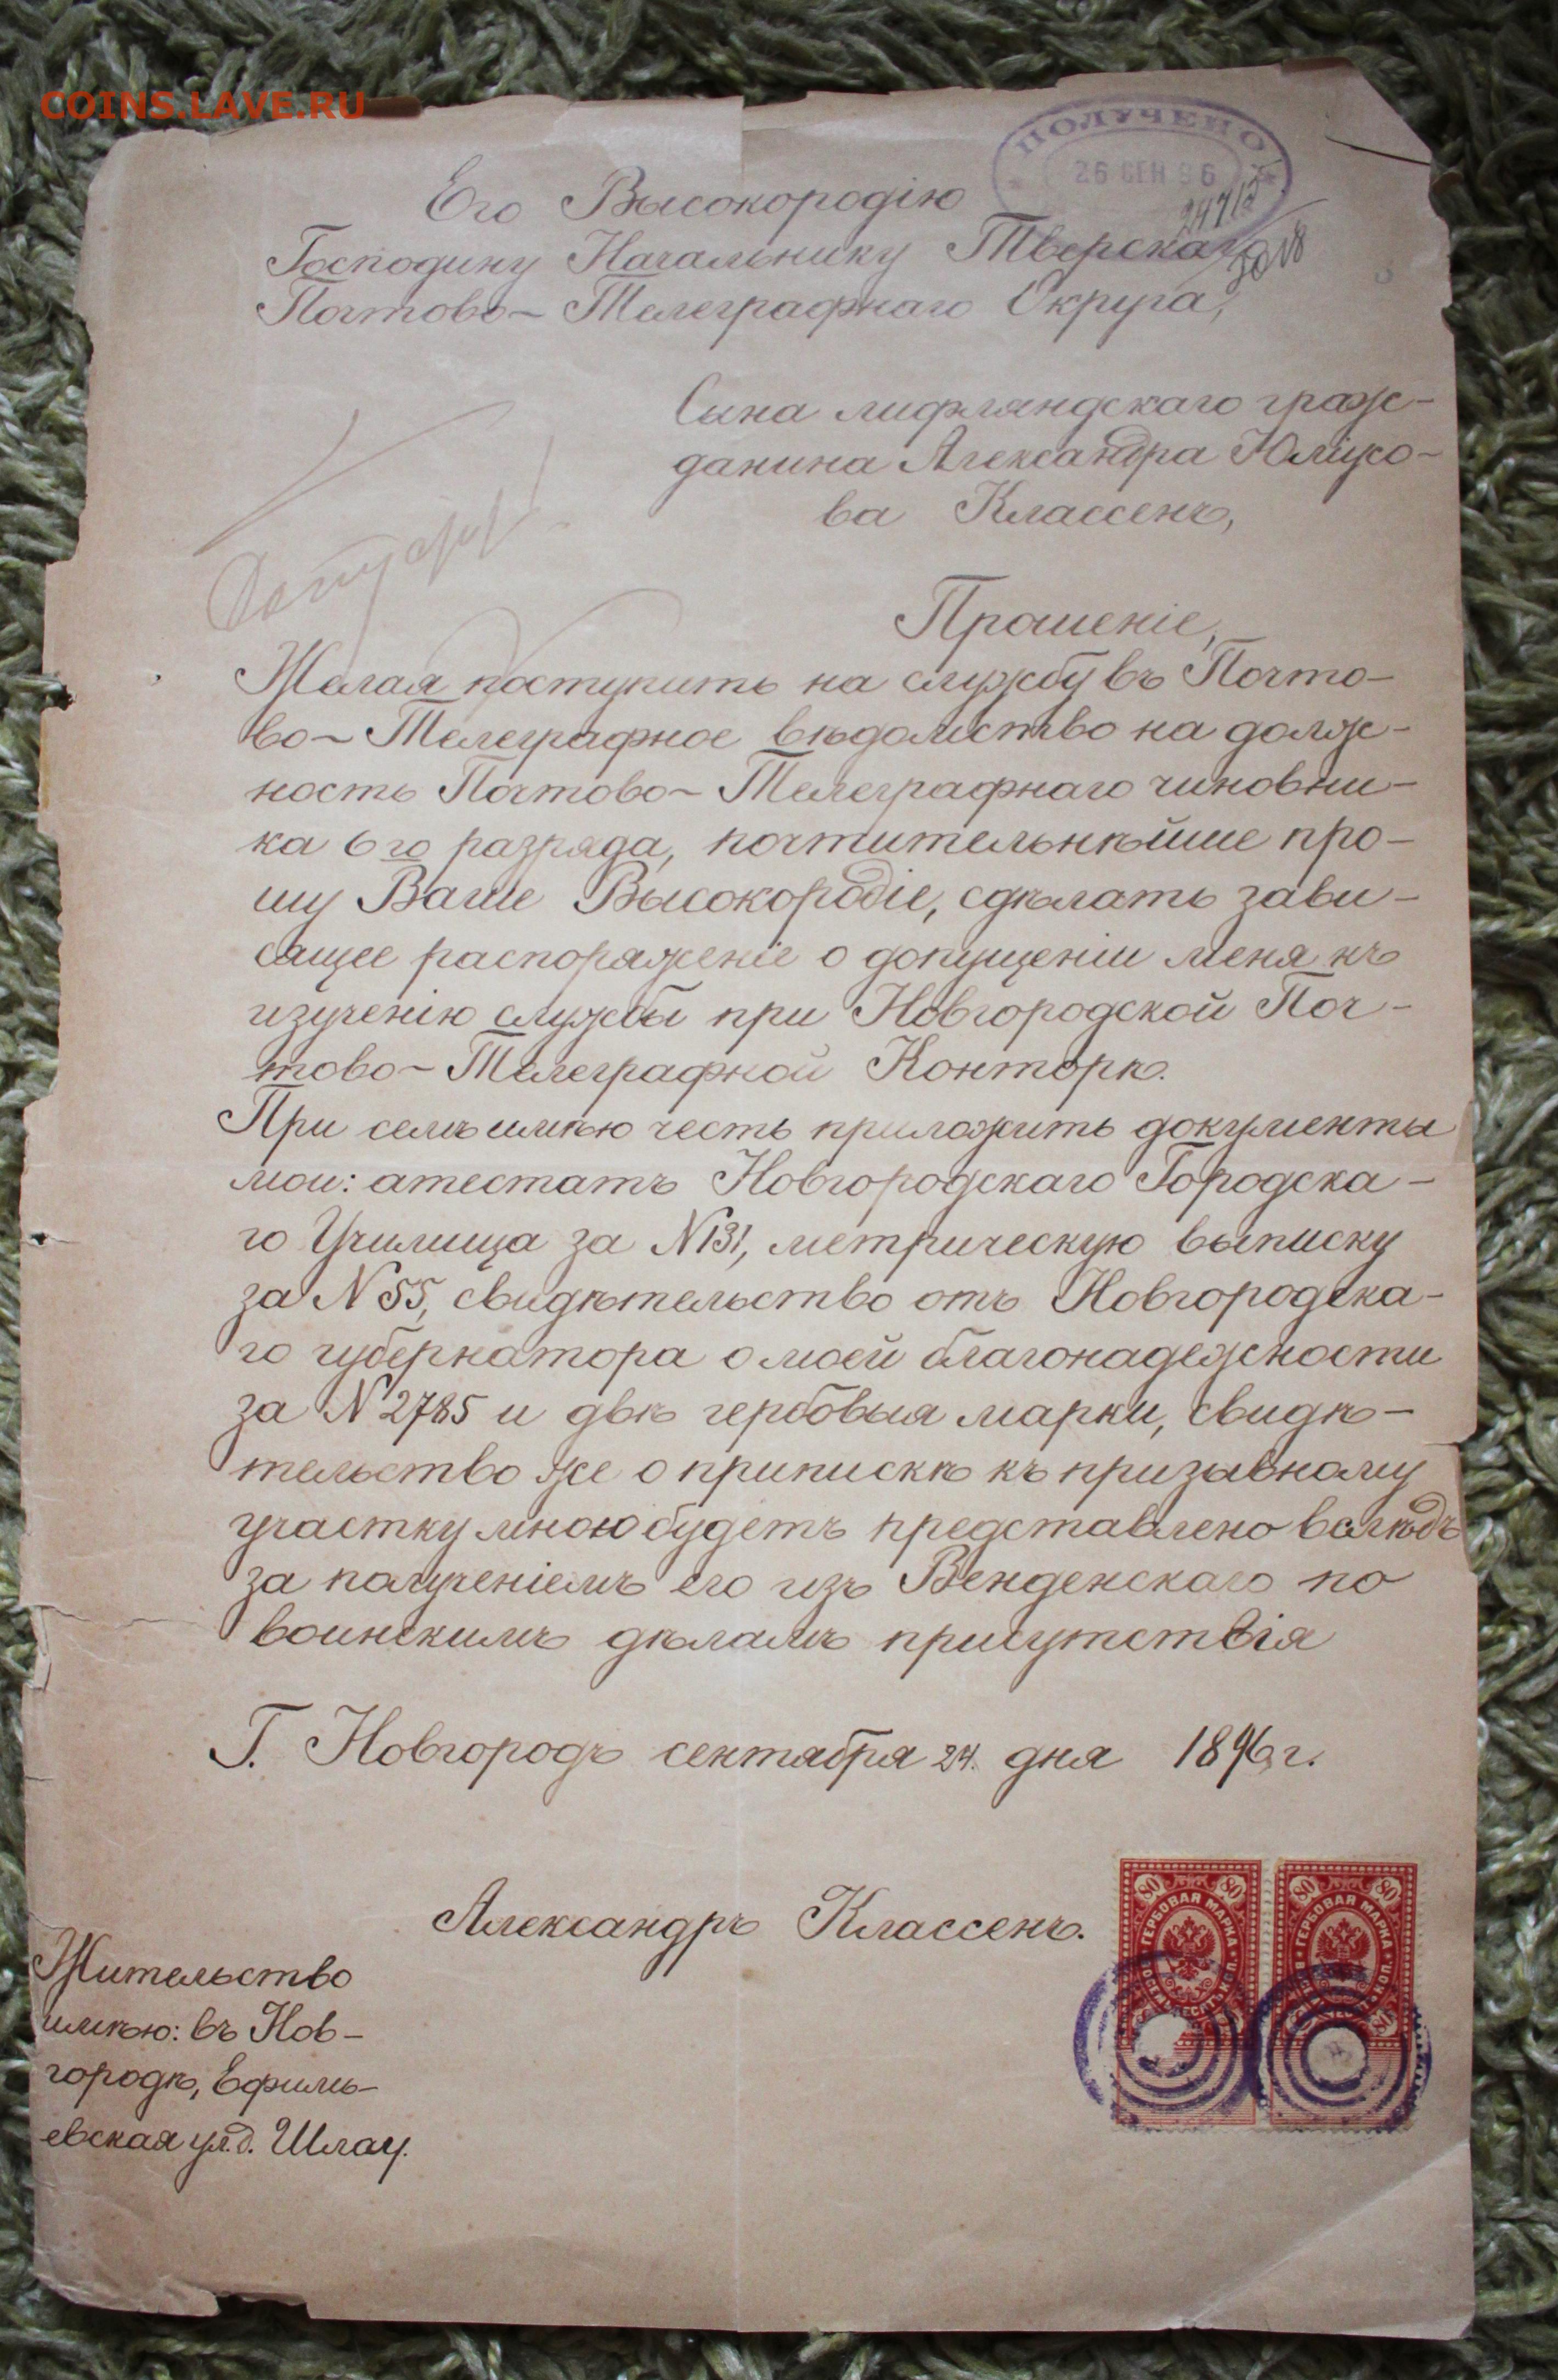 COINS.LAVE.RU
ПОЛУЧЕНО
26 СЕН 96
Его Высокородію
Господину Начальнику Тверскаго
Почтово-Телеграфнаго Округа,
Сына лифляндскаго граж-
данина Александра Юліусо-
ва Классенъ,
Прошеніе,
Желая поступить на службу въ Почто-
во-Телеграфное вѣдомство на долж-
ность Почтово-Телеграфнаго чиновни-
ка 6го разряда, почтительнѣйше про-
шу Ваше Высокородіе, сдѣлать зави-
сящее распоряженіе о допущеніи меня къ
изученію службы при Новгородской Поч-
тово-Телеграфной Конторѣ.
При семъ имѣю честь приложить документы
мои: атестатъ Новгородскаго Городска-
го Училища за N131, метрическую выписку
за N 55, свидѣтельство отъ Новгородска-
го губернатора о моей благонадежности
за N 2785 и двѣ гербовыя марки, свидѣ-
тельство же о припискѣ къ призывному
участку мною будетъ представлено вслѣдъ
за полученіемъ его изъ Венденскаго по
воинскимъ дѣламъ присутствія
Г. Новгородъ сентября 24. дня 1896 г.
Александръ Классенъ.
80 80 80 80
ГЕРБОВАЯ МАРКА ГЕРБОВАЯ МАРКА
Жительство
имѣю: въ Нов-
городѣ, Ефимь-
евская ул. д. Шлау.